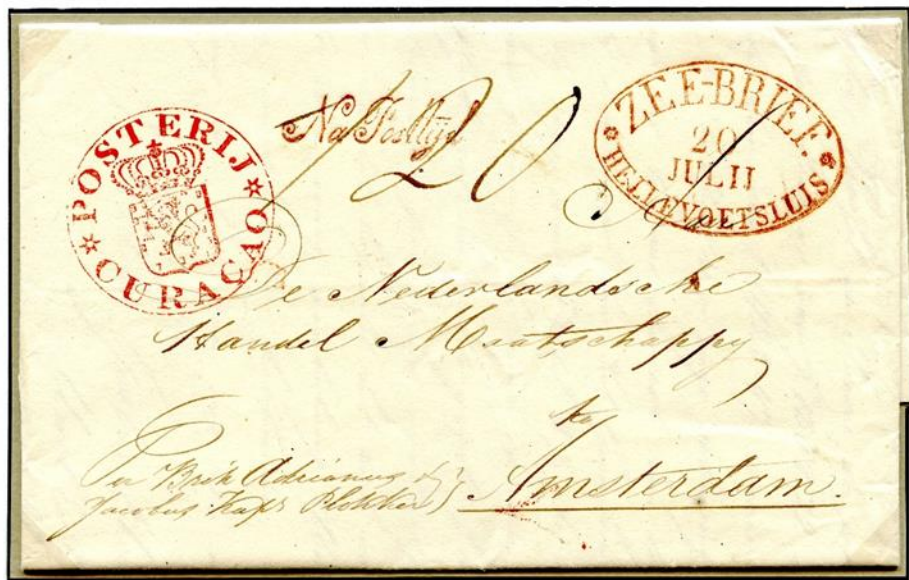 POSTERIJ
CURAÇAO
Na Posttijd
120
ZEE-BRIEF.
20
JULIJ
HELLEVOETSLUIS
De Nederlandsche
Handel Maatschappy
te
Per Brik Adrianus &
Jacobus Kapt Plokker
Amsterdam.